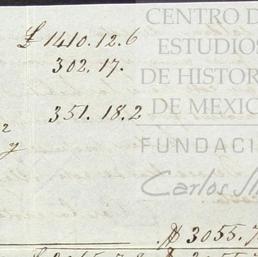 £ 1410.12.6
302.17.
351.18.2
y
$ 3055.7
CENTRO D
ESTUDIOS
DE HISTOR
DE MEXIC
FUNDACI
Carlos